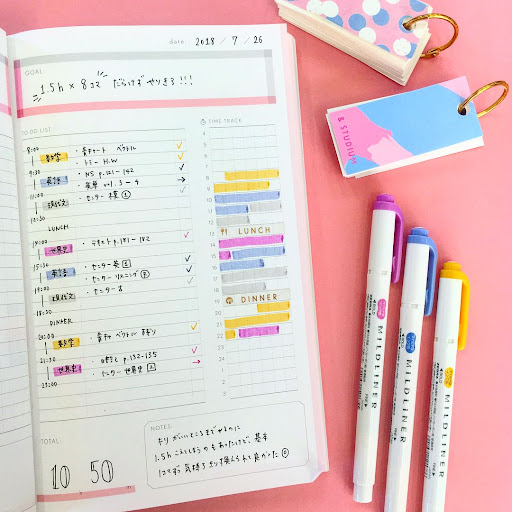 date 2018 / 7 / 26
GOAL:
1.5h × 8コマ だらけずやりきる!!!
TO DO LIST
TIME TRACK
8:00
数学 ・青チャート ベクトル
9:30 ・トミー H.W
英語 ・NS p.121-142
11:00 ・英単 vol.3-4
現代文 ・センター
12:30
LUNCH
14:00
世界史 ・テキスト p.141-142
15:30
英語 ・センター英
・センターリスニング
現代文 ・センター古
DINNER
20:00
数学 ・青チャ ベクトル
21:30
世界史 p.132-135
23:00 ・センター世界史
4
5
6
7
8
9
10
11
12
13 LUNCH
14
15
16
17
18
19 DINNER
20
21
22
TOTAL:
10 50
NOTES:
キリがいいところまでやるのに
1.5hこえてしまうのもあったけど、基本
1コマずつ気持ち切り換えられて良かった
& STUDIUM
MILDLINER
MILDLINER
MILDLINER